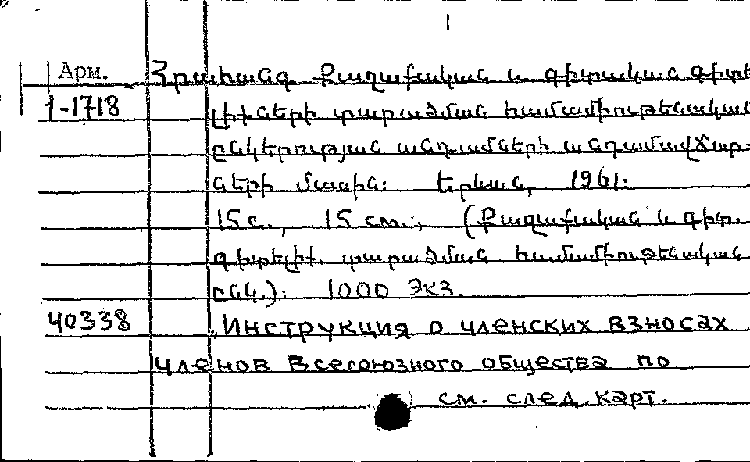 Арм. Հրահանգ Քաղաքական և գիտական գիտե
1-1718 լիքների տարածման համամիութենական
ընկերության անդամների անդամավճար-
ների մասին: Երևան, 1961:
15 с., 15 см., (Քաղաքական և գիտ.
գիտելիք. տարածման համամիութենական
ընկ.): 1000 экз.
40338 "Инструкция о членских взносах
членов Всесоюзного общества по
см. след. карт.